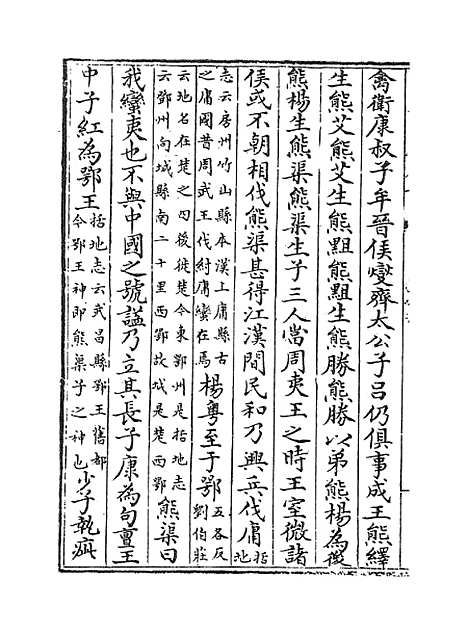 禽衛康叔子牟晉侯燮齊太公子吕仍俱事成王熊繹
生熊艾熊艾生熊䵣熊䵣生熊勝熊勝以弟熊楊為後
熊楊生熊渠熊渠生子三人當周夷王之時王室微諸
侯或不朝相伐熊渠甚得江漢間民和乃興兵伐庸括地
志云房州竹山縣本漢上庸縣古之庸國昔周武王伐紂庸蠻在焉楊粤至于鄂五各反劉伯莊
云地名在楚之西後徙楚今東鄂州是括地志云鄧州向城縣南二十里西鄂故城是楚西鄂熊渠曰
我蠻夷也不與中國之號諡乃立其長子康為句亶王
中子紅為鄂王括地志云武昌縣鄂王舊都今鄂王神即熊渠子之神也少子執疵